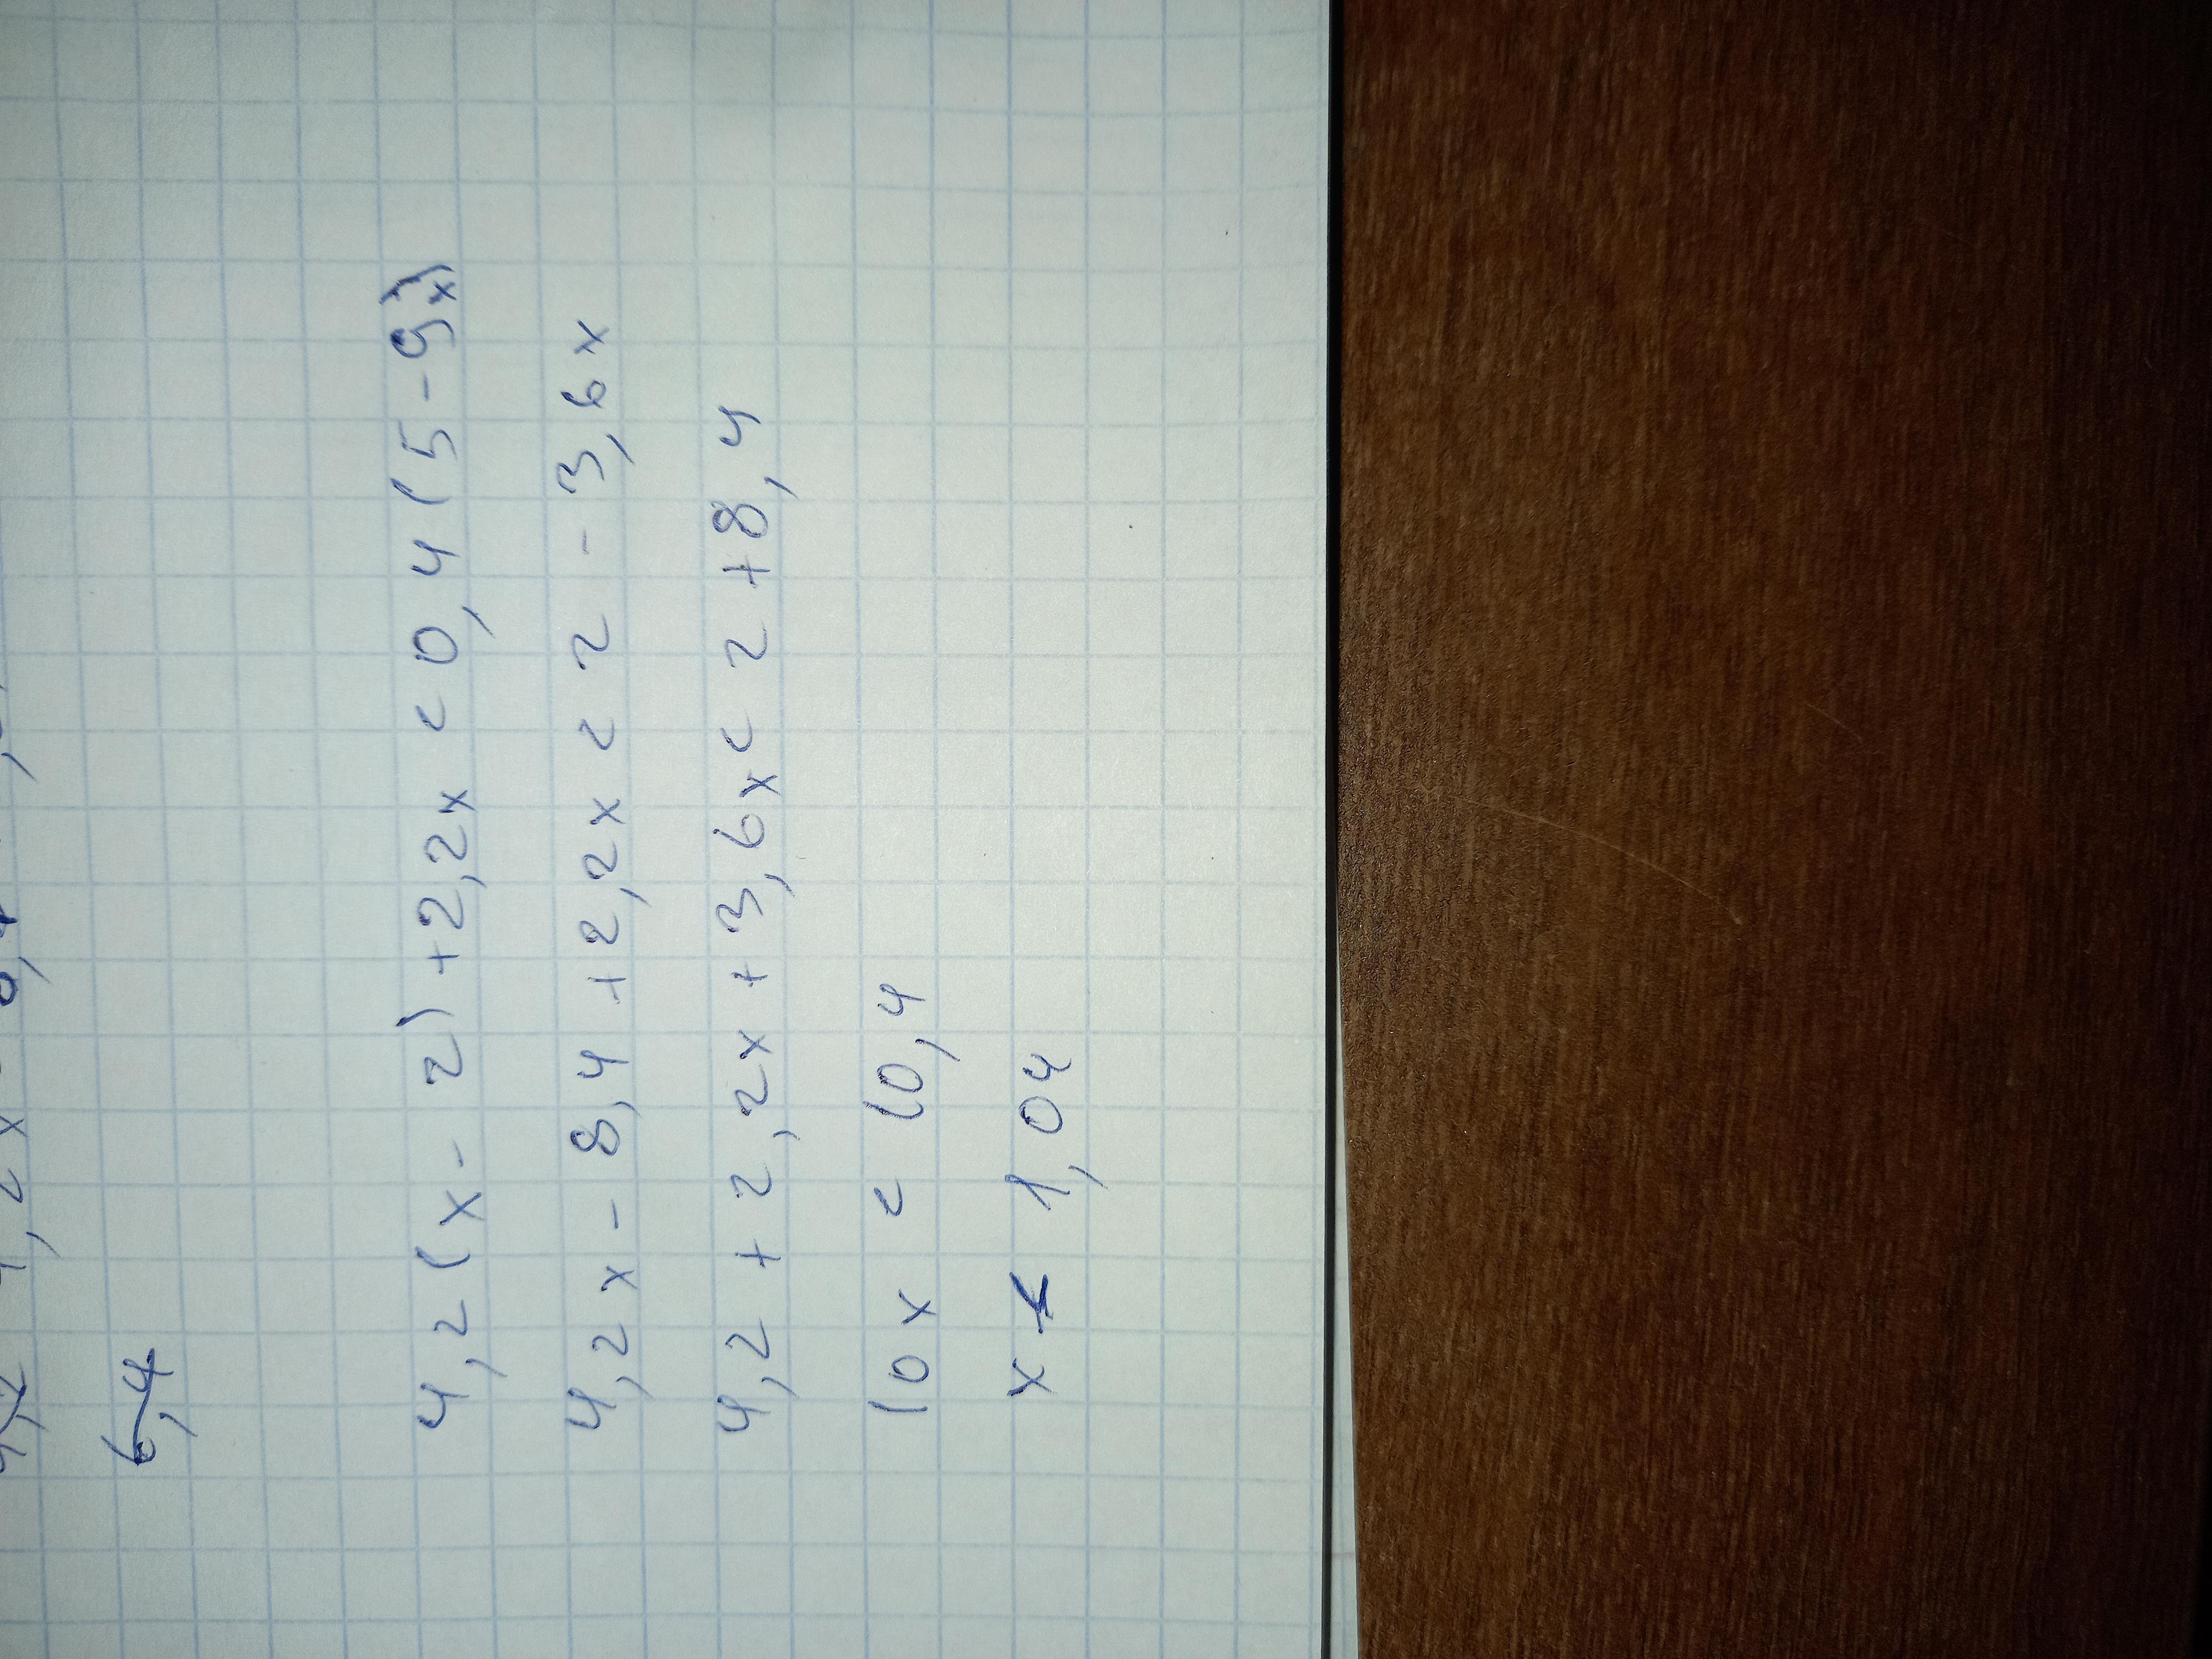 6,4
4,2(x-2)+2,2x<0,4(5-9x)
4,2x-8,4+2,2x<2-3,6x
4,2+2,2x+3,6x<2+8,4
10x<10,4
x<1,04